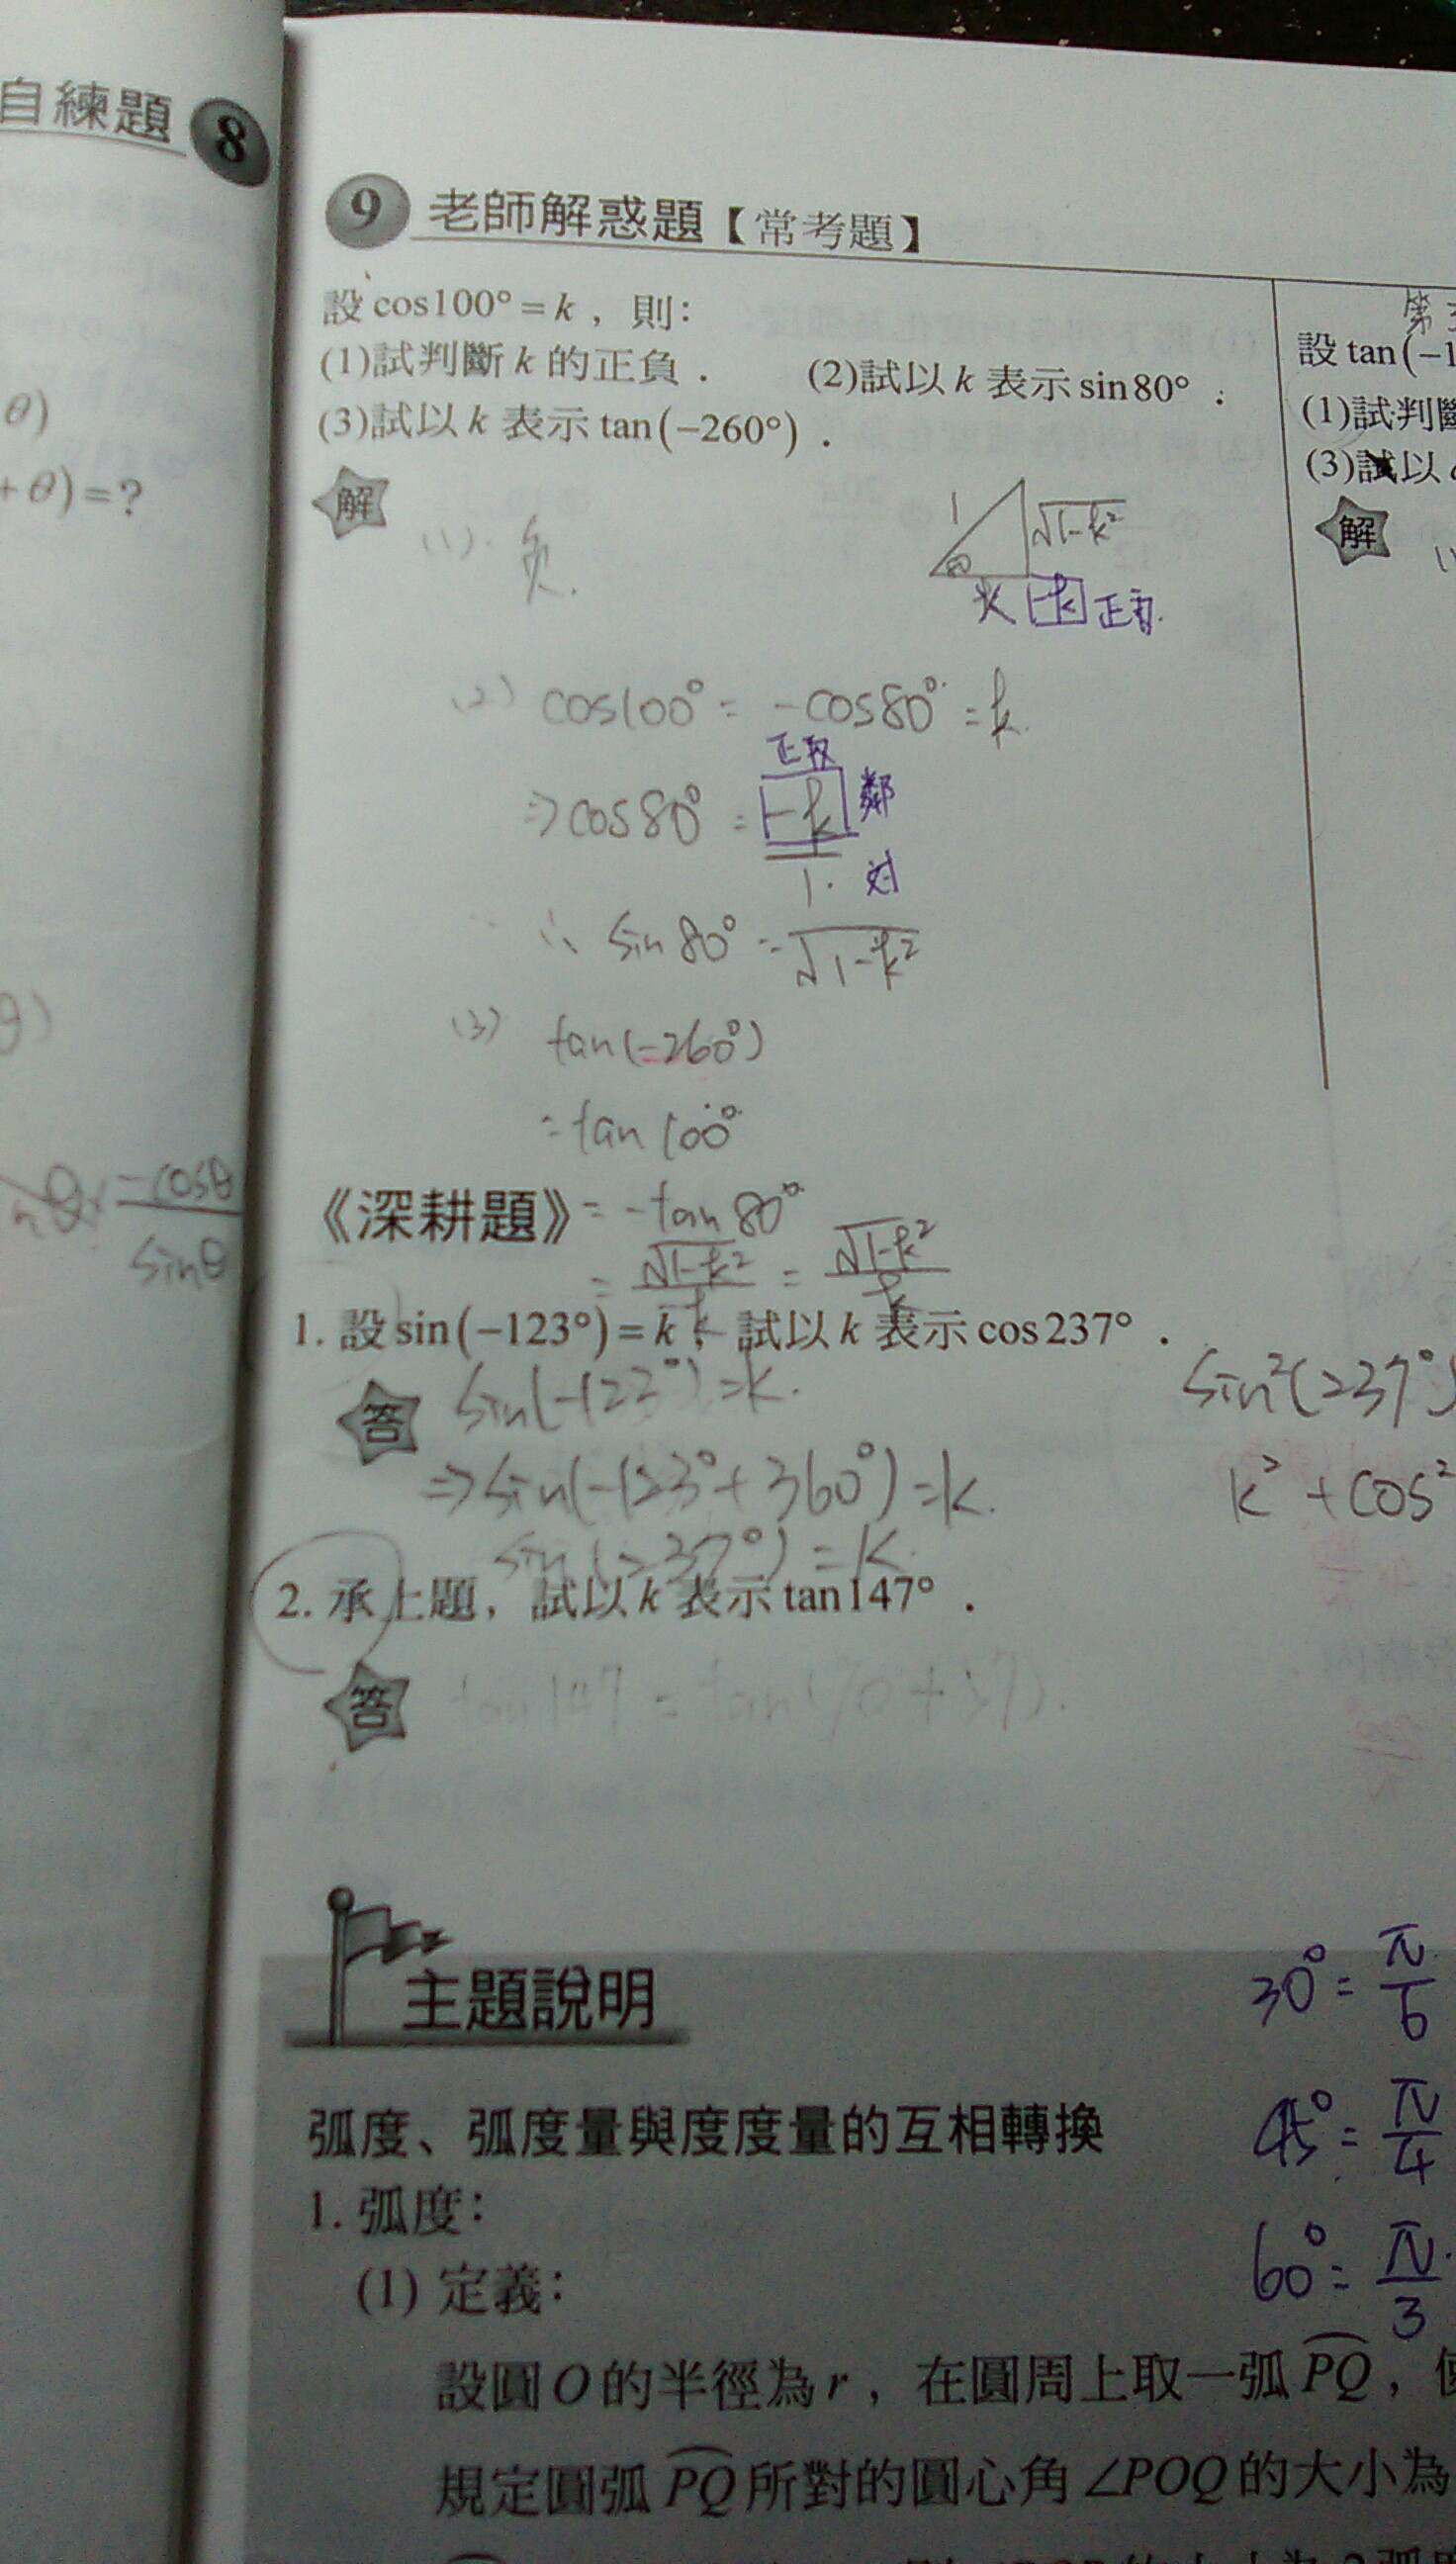 自練題 8
θ)
+θ)=?
θ)
-cosθ
sinθ
9 老師解惑題【常考題】
設cos100°=k，則：
(1)試判斷k的正負．
(2)試以k表示sin80°．
(3)試以k表示tan(−260°)．
解
(1). 負.
1
√1-k²
80
-k 正負.
(2) cos100° = -cos80° = k
正取
⇒cos80° = -k 鄰
1. 對
∴ sin80° = √1-k²
(3) tan(-260°)
=tan100°
《深耕題》= -tan80°
= √1-k² = √1-k²
k
1. 設sin(−123°)=k，試以k表示cos237°．
答 sin(-123°)=k.
⇒sin(-123°+360°)=k.
sin(237°)=k.
sin²(237°)
k²+cos²
2. 承上題，試以k表示tan147°．
答 tan147 = tan(90+57).
設tan(−1
(1)試判斷
(3)試以
解
主題說明
30°=π/6
弧度、弧度量與度度量的互相轉換
45°=π/4
1. 弧度：
60°=π/3
(1) 定義：
設圓O的半徑為r，在圓周上取一弧PQ，使
規定圓弧PQ所對的圓心角∠POQ的大小為